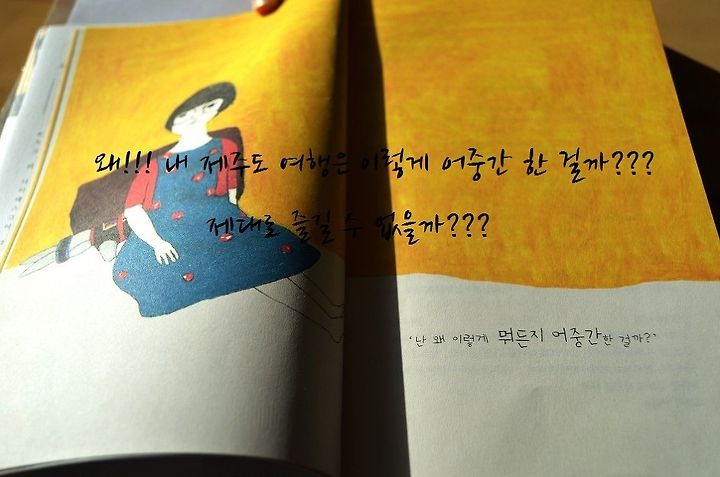 왜!!! 내 제주도 여행은 이렇게 어중간 한 걸까???
제대로 즐길 수 없을까???
'난 왜 이렇게 뭐든지 어중간한 걸까?'